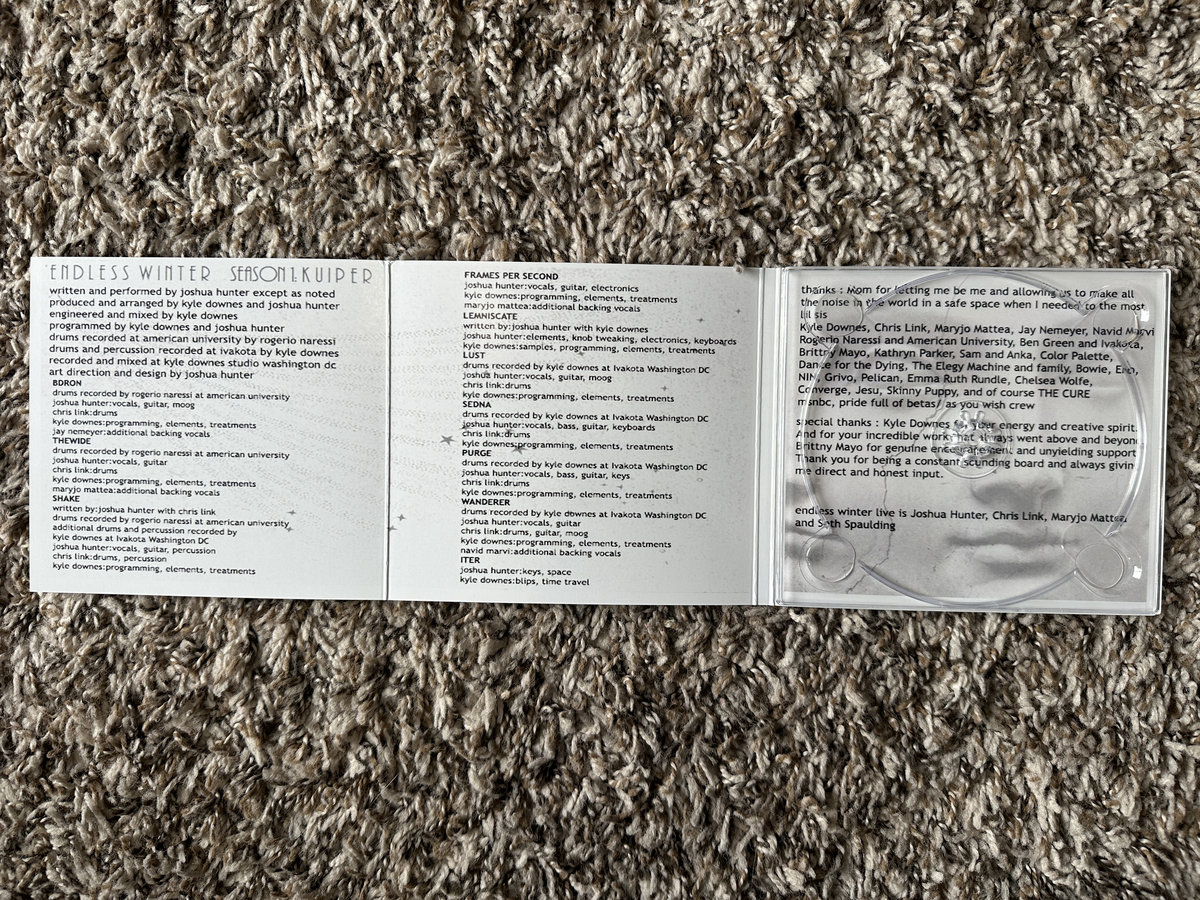 ENDLESS WINTER SEASON 1: KUIPER
written and performed by joshua hunter except as noted
produced and arranged by kyle downes and joshua hunter
engineered and mixed by kyle downes
programmed by kyle downes and joshua hunter
drums recorded at american university by rogerio naressi
drums and percussion recorded at ivakota by kyle downes
recorded and mixed at kyle downes studio washington dc
art direction and design by joshua hunter
BDRON
drums recorded by rogerio naressi at american university
joshua hunter:vocals, guitar, moog
chris link:drums
kyle downes:programming, elements, treatments
jay nemeyer:additional backing vocals
THEWIDE
drums recorded by rogerio naressi at american university
joshua hunter:vocals, guitar
chris link:drums
kyle downes:programming, elements, treatments
maryjo mattea:additional backing vocals
SHAKE
written by:joshua hunter with chris link
drums recorded by rogerio naressi at american university
additional drums and percussion recorded by
kyle downes at Ivakota Washington DC
joshua hunter:vocals, guitar, percussion
chris link:drums, percussion
kyle downes:programming, elements, treatments
FRAMES PER SECOND
joshua hunter:vocals, guitar, electronics
kyle downes:programming, elements, treatments
maryjo mattea:additional backing vocals
LEMNISCATE
written by:joshua hunter with kyle downes
joshua hunter:elements, knob tweaking, electronics, keyboards
kyle downes:samples, programming, elements, treatments
LUST
drums recorded by kyle downes at Ivakota Washington DC
joshua hunter:vocals, guitar, moog
chris link:drums
kyle downes:programming, elements, treatments
SEDNA
drums recorded by kyle downes at Ivakota Washington DC
joshua hunter:vocals, bass, guitar, keyboards
chris link:drums
kyle downes:programming, elements, treatments
PURGE
drums recorded by kyle downes at Ivakota Washington DC
joshua hunter:vocals, bass, guitar, keys
chris link:drums
kyle downes:programming, elements, treatments
WANDERER
drums recorded by kyle downes at Ivakota Washington DC
joshua hunter:vocals, guitar
chris link:drums, guitar, moog
kyle downes:programming, elements, treatments
navid marvi:additional backing vocals
ITER
joshua hunter:keys, space
kyle downes:blips, time travel
thanks : Mom for letting me be me and allowing us to make all
the noise in the world in a safe space when I needed to the most
Lil sis
Kyle Downes, Chris Link, Maryjo Mattea, Jay Nemeyer, Navid Marvi
Rogerio Naressi and American University, Ben Green and Ivakota,
Brittny Mayo, Kathryn Parker, Sam and Anka, Color Palette,
Dance for the Dying, The Elegy Machine and family, Bowie, Eno,
NIN, Grivo, Pelican, Emma Ruth Rundle, Chelsea Wolfe,
Converge, Jesu, Skinny Puppy, and of course THE CURE
msnbc, pride full of betas/ as you wish crew
special thanks : Kyle Downes for your energy and creative spirit.
And for your incredible work that always went above and beyond
Brittny Mayo for genuine encouragement and unyielding support
Thank you for being a constant sounding board and always giving
me direct and honest input.
endless winter live is Joshua Hunter, Chris Link, Maryjo Mattea
and Seth Spaulding